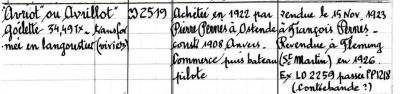 "Avriot" ou Avrillot"
goëlette - 34,49 Tx - transfor
mée en langoustier (viviers)
D 2519
Achetée en 1922 par
Pierre Pernes à Ostende
const 1908, Anvers.
Commerce, puis bateau
pilote
Vendue le 15 Nov. 1923
à François Pernes.
Revendue à Fleming
(St Martin) en 1926.
Ex LO 2259 passée PP1218
(Contrebande ?)